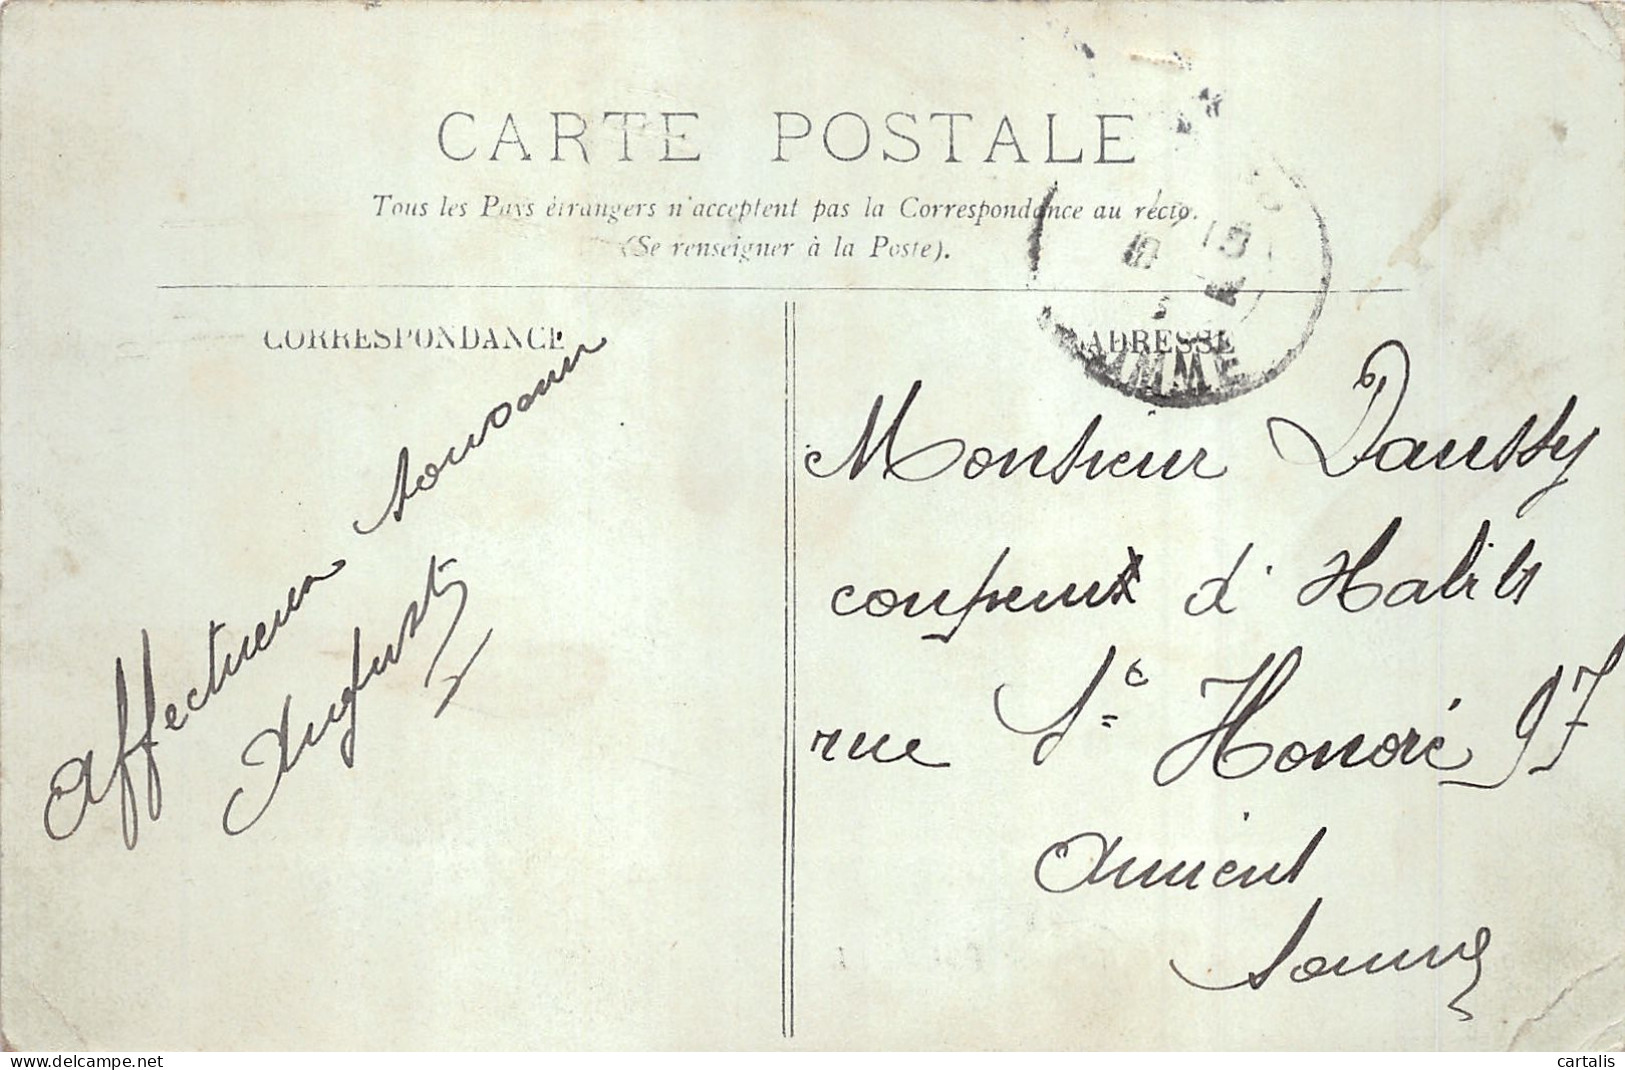 CARTE POSTALE
Tous les Pays étrangers n'acceptent pas la Correspondance au recto.
(Se renseigner à la Poste).
CORRESPONDANCE
ADRESSE
Affectueux souvenir
August
Monsieur Daussy
coupeur d'Habits
rue St Honoré 97
Amiens
Somme
delcampe.net
cartalis